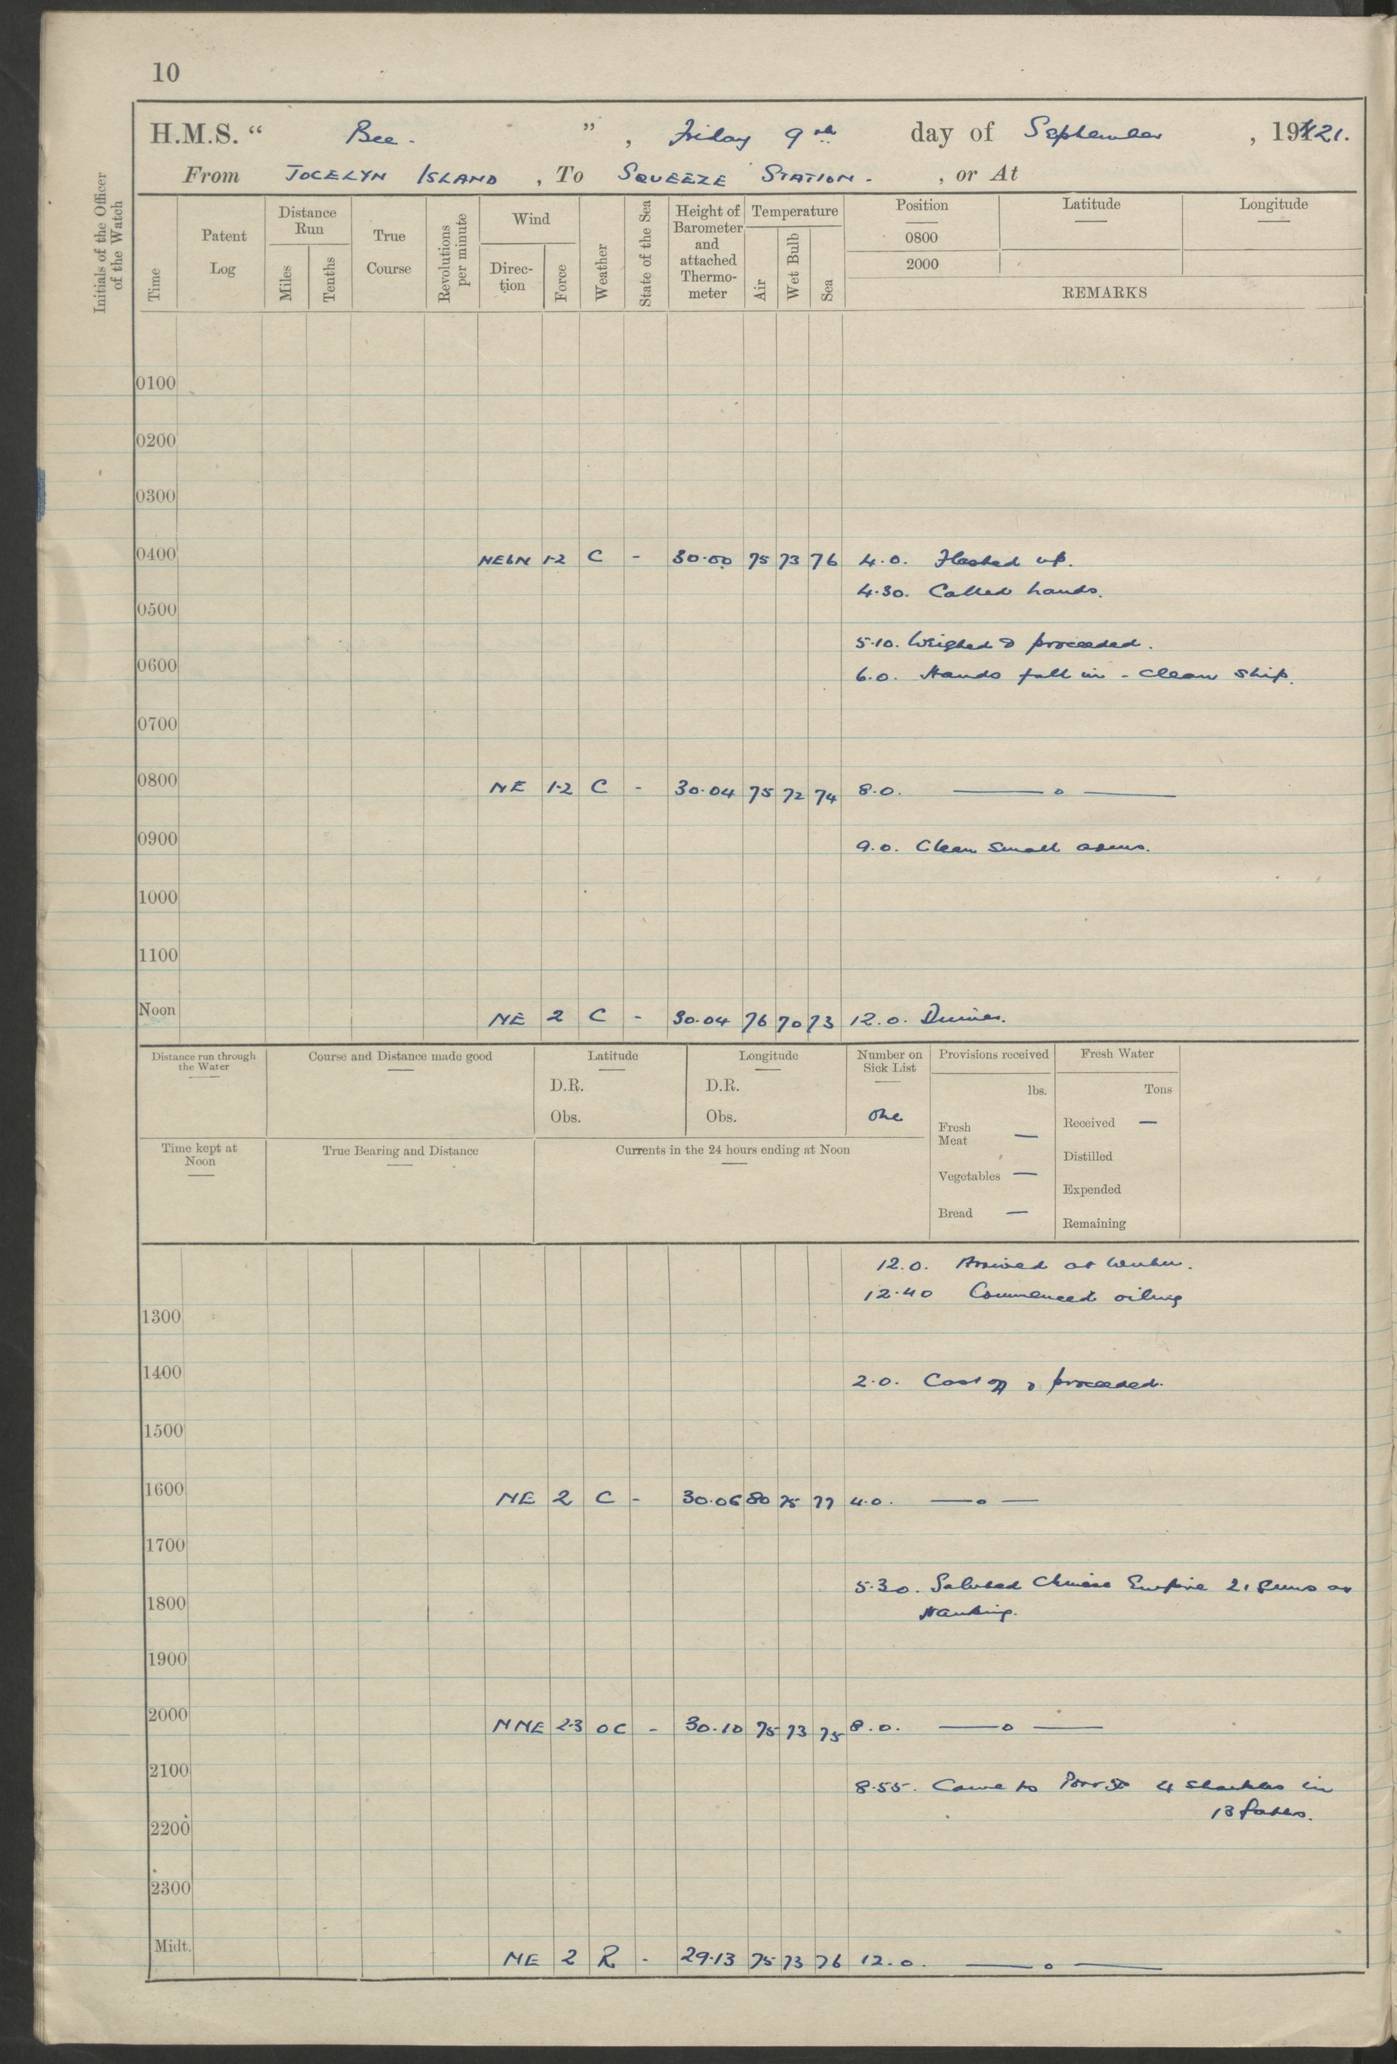 10
H.M.S. “ Bee. ” , Friday 9th day of September , 1921.
From JOCELYN ISLAND , To SQUEEZE STATION. , or At
Initials of the Officer of the Watch
Time
Patent Log
Distance Run
Miles
Tenths
True Course
Revolutions per minute
Wind
Direc-tion
Force
Weather
State of the Sea
Height of Barometer and attached Thermo-meter
Temperature
Air
Wet Bulb
Sea
Position
0800
2000
Latitude
Longitude
REMARKS
0100
0200
0300
0400 NEbN 1-2 C - 30.00 75 73 76 4.0. Flashed up.
4.30. Called hands.
0500
5.10. Weighed & proceeded.
0600
6.0. Hands fall in - Clean Ship.
0700
0800 NE 1-2 C - 30.04 75 72 74 8.0. — o —
0900
9.0. Clean small arms.
1000
1100
Noon NE 2 C - 30.04 76 70 73 12.0. Dinner.
Distance run through the Water
Course and Distance made good
Latitude
D.R.
Obs.
Longitude
D.R.
Obs.
Number on Sick List
One
Provisions received
lbs.
Fresh Meat —
Vegetables —
Bread —
Fresh Water
Tons
Received —
Distilled
Expended
Remaining
Time kept at Noon
True Bearing and Distance
Currents in the 24 hours ending at Noon
12.0. Arrived at Wuhu.
12.40 Commenced oiling
1300
1400
2.0. Cast off & proceeded.
1500
1600 NE 2 C - 30.06 80 75 77 4.0. — o —
1700
5.30. Saluted Chinese Empire 21 guns at
1800
Nanking.
1900
2000 NNE 2-3 OC - 30.10 75 73 75 8.0. — o —
2100
8.55. Came to Port 4 shackles in
13 fathoms.
2200
2300
Midt. NE 2 R - 29.13 75 73 76 12.0. — o —